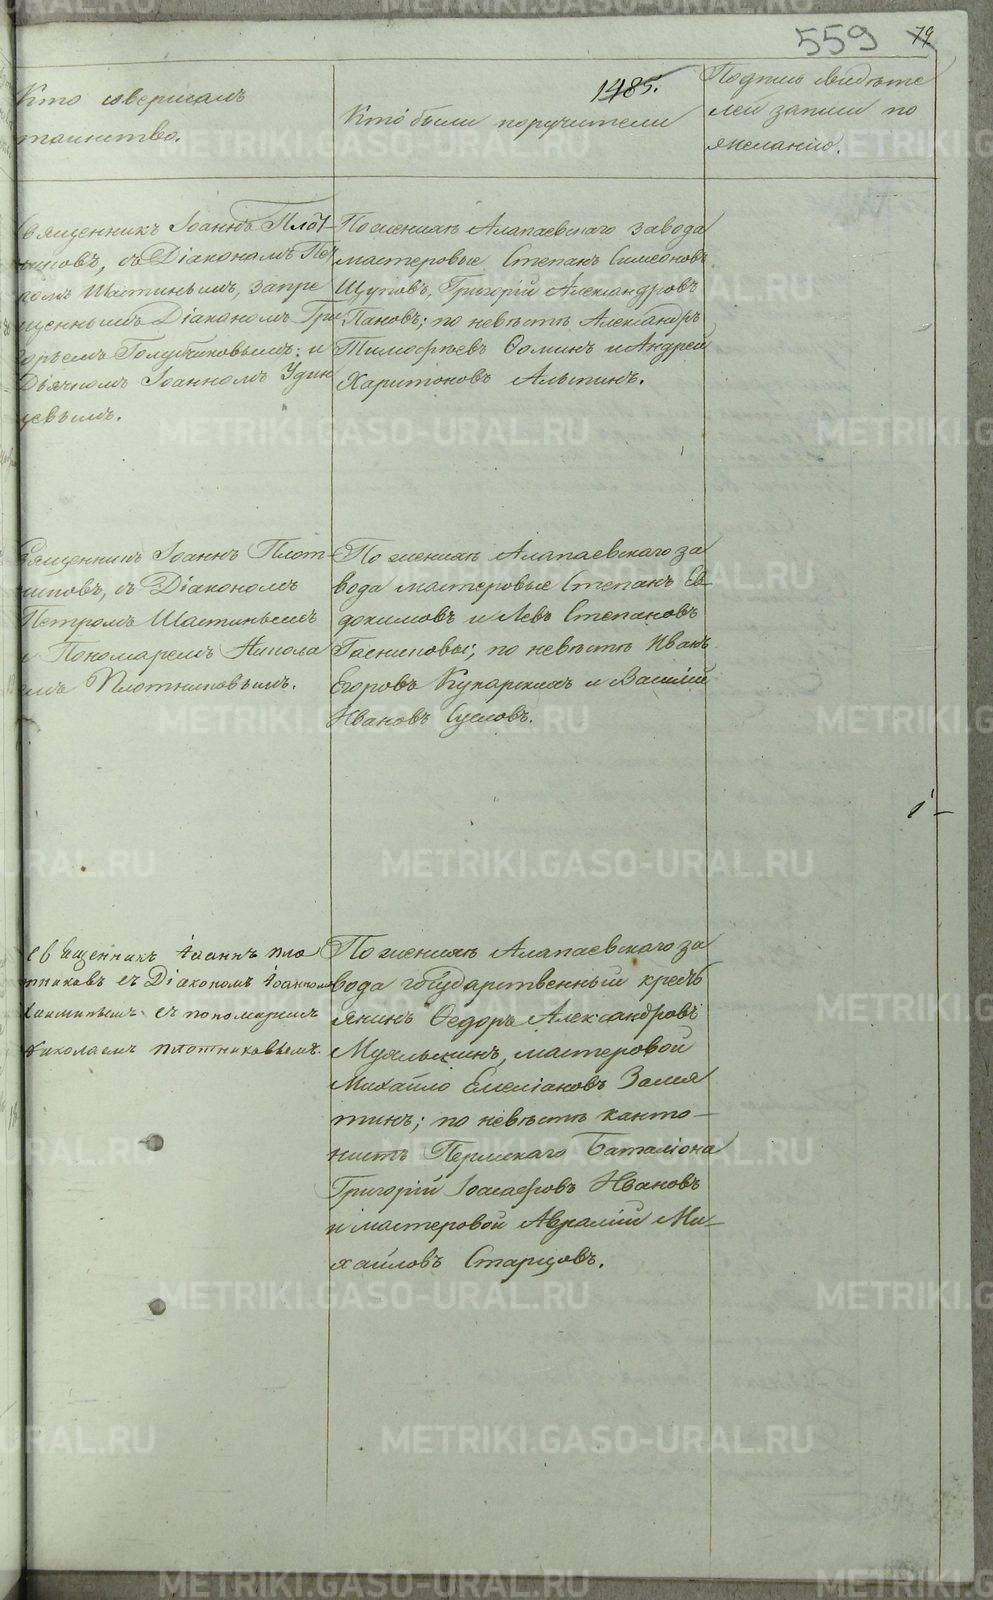 559 79
1485.
Кто совершалъ
таинство.
Кто были поручители
Подпись свидѣте
лей записи по
желанію.
Священникъ Іоаннъ Плот
никовъ, съ Діакономъ Пет
ромъ Шастинымъ, запре
щеннымъ Діакономъ Гри
горьемъ Голубчиковымъ; и
Дьячкомъ Іоанномъ Удин
цевымъ.
По женихѣ Алапаевскаго завода
мастеровые Степанъ Симеоновъ
Щуповъ, Григорій Александровъ
Пановъ; по невѣстѣ Александръ
Тимофѣевъ Ѳоминъ и Андрей
Харитоновъ Алыпинъ.
Священникъ Іоаннъ Плот
никовъ, съ Діакономъ
Петромъ Шастинымъ
и Пономаремъ Никола
емъ Плотниковымъ.
По женихѣ Алапаевскаго за
вода мастеровые Степанъ Ев
докимовъ и Левъ Степановъ
Гасниковы; по невѣстѣ Иванъ
Егоровъ Кукарскихъ и Василій
Ивановъ Сусловъ.
1 –
Священникъ Іоаннъ Пло
тниковъ съ Діакономъ Іоанномъ
съ пономаремъ
Николаемъ Плотниковымъ.
По женихѣ Алапаевскаго за
вода государственный кресть
янинъ Ѳедоръ Александровъ
мастеровой
Михайло Емеліановъ Замя
тинъ; по невѣстѣ канто–
нистъ Пермскаго Баталіона
Григорій Іоасафовъ Ивановъ
и мастеровой Аврамій Ми–
хайловъ Старцовъ.
METRIKI.GASO-URAL.RU